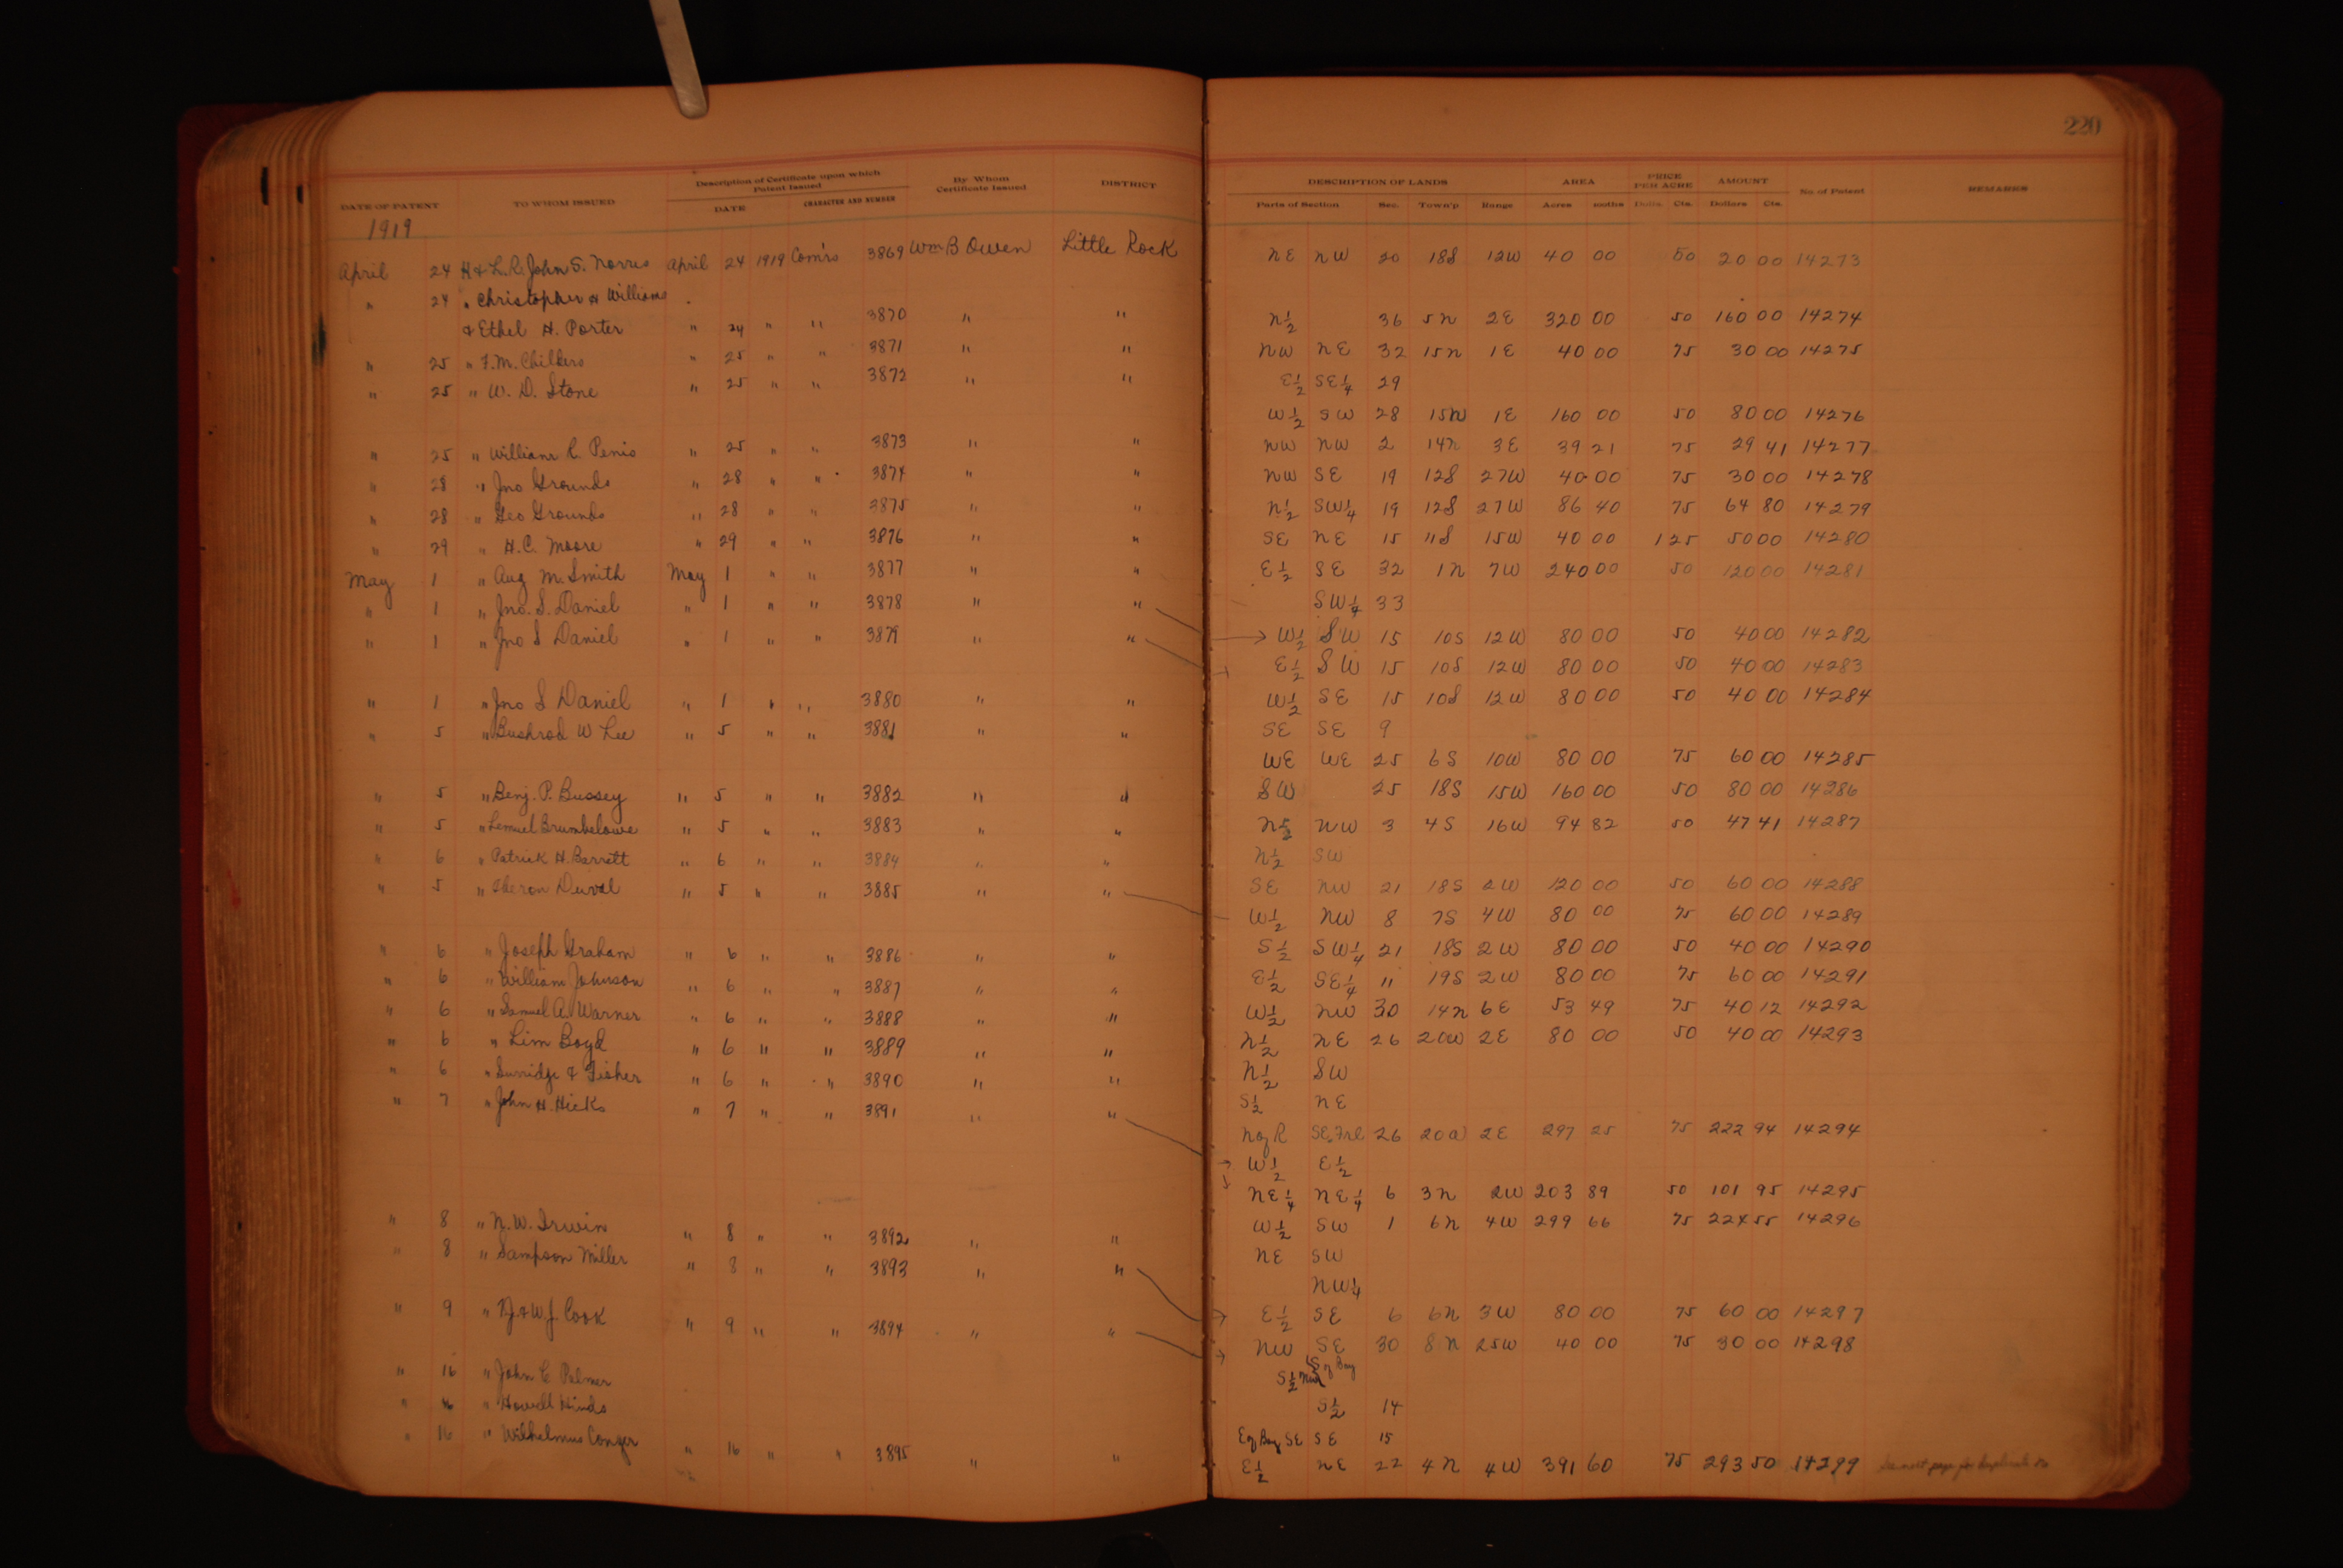 220
DATE OF PATENT TO WHOM ISSUED Description of Certificate upon which Patent Issued By Whom Certificate Issued DISTRICT
DATE CHARACTER AND NUMBER
DESCRIPTION OF LANDS AREA PRICE PER ACRE AMOUNT No. of Patent REMARKS
Parts of Section Sec. Town'p Range Acres 100ths Dolls. Cts. Dollars Cts.
1919
April 24 H & L.R. John S. Norris April 24 1919 Com'rs 3869 Wm B Owen Little Rock NE NW 20 18S 12W 40 00 50 20 00 14273
" 24 " Christopher H Williams
& Ethel H. Porter " 24 " " 3870 " " N½ 36 5N 2E 320 00 50 160 00 14274
" 25 " F.M. Childers " 25 " " 3871 " " NW NE 32 15N 1E 40 00 75 30 00 14275
" 25 " W. D. Stone " 25 " " 3872 " " E½ SE¼ 29
W½ SW 28 15N 1E 160 00 50 80 00 14276
" 25 " William R. Penis " 25 " " 3873 " " NW NW 2 14N 3E 39 21 75 29 41 14277
" 28 " Jno Grounds " 28 " " 3874 " " NW SE 19 12S 27W 40 00 75 30 00 14278
" 28 " Geo Grounds " 28 " " 3875 " " N½ SW¼ 19 12S 27W 86 40 75 64 80 14279
" 29 " H.C. Moore " 29 " " 3876 " " SE NE 15 11S 15W 40 00 1 25 50 00 14280
May 1 " Aug M. Smith May 1 " " 3877 " " E½ SE 32 1N 7W 240 00 50 120 00 14281
SW¼ 33
" 1 " Jno. S. Daniel " 1 " " 3878 " " W½ SW 15 10S 12W 80 00 50 40 00 14282
" 1 " Jno S Daniel " 1 " " 3879 " " E½ SW 15 10S 12W 80 00 50 40 00 14283
" 1 " Jno S Daniel " 1 " " 3880 " " W½ SE 15 10S 12W 80 00 50 40 00 14284
" 5 " Bushrod W Lee " 5 " " 3881 " " SE SE 9
WE WE 25 6S 10W 80 00 75 60 00 14285
" 5 " Benj. P. Bussey " 5 " " 3882 " " SW 25 18S 15W 160 00 50 80 00 14286
" 5 " Lemuel Brumbelowe " 5 " " 3883 " " N½ NW 3 4S 16W 94 82 50 47 41 14287
" 6 " Patrick H. Barrett " 6 " " 3884 " " N½ SW
SE NW 21 18S 2W 120 00 50 60 00 14288
" 5 " Duval " 5 " " 3885 " " W½ NW 8 7S 4W 80 00 75 60 00 14289
" 6 " Joseph Graham " 6 " " 3886 " " S½ SW¼ 21 18S 2W 80 00 50 40 00 14290
" 6 " William Johnson " 6 " " 3887 " " E½ SE¼ 11 19S 2W 80 00 75 60 00 14291
" 6 " Samuel A. Warner " 6 " " 3888 " " W½ NW 30 14N 6E 53 49 75 40 12 14292
" 6 " Lim Boyd " 6 " " 3889 " " N½ NE 26 20W 2E 80 00 50 40 00 14293
" 6 " Surridge & Fisher " 6 " " 3890 " " N½ SW
S½ NE
N of R SE Frl 26 20W 2E 297 25 75 222 94 14294
" 7 " John H. Hicks " 7 " " 3891 " " W½ E½
NE¼ NE¼ 6 3N 2W 203 89 50 101 95 14295
" 8 " N. W. Irwin " 8 " " 3892 " " W½ SW 1 6N 4W 299 66 75 224 55 14296
NE SW
NW¼
" 8 " Sampson Miller " 8 " " 3893 " " E½ SE 6 6N 3W 80 00 75 60 00 14297
" 9 " & W. J. Cook " 9 " " 3894 " " NW SE 30 8N 25W 40 00 75 30 00 14298
" 16 " John C Palmer S½ NW S of Bay
" 16 " Howell Hinds S½ 14
E of Bay SE SE 15
" 16 " Wilhelmus Conger " 16 " " 3895 " " E½ NE 22 4N 4W 391 60 75 293 50 14299 See next page for duplicate